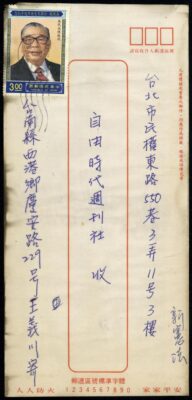 台北市民權東路550巷3弄11号3樓
自由時代週刊社 收
台南縣西港鄉慶安路229号王義川寄
新憲法
3.00
郵遞區號標準字體
1234567890
人人防火
家家平安